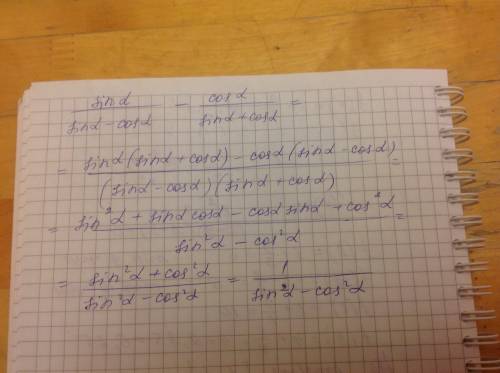 sinα/(sinα - cosα) - cosα/(sinα + cosα) =
= (sinα(sinα + cosα) - cosα(sinα - cosα))/((sinα - cosα)(sinα + cosα)) =
= (sin²α + sinα cosα - cosα sinα + cos²α)/(sin²α - cos²α) =
= (sin²α + cos²α)/(sin²α - cos²α) = 1/(sin²α - cos²α)